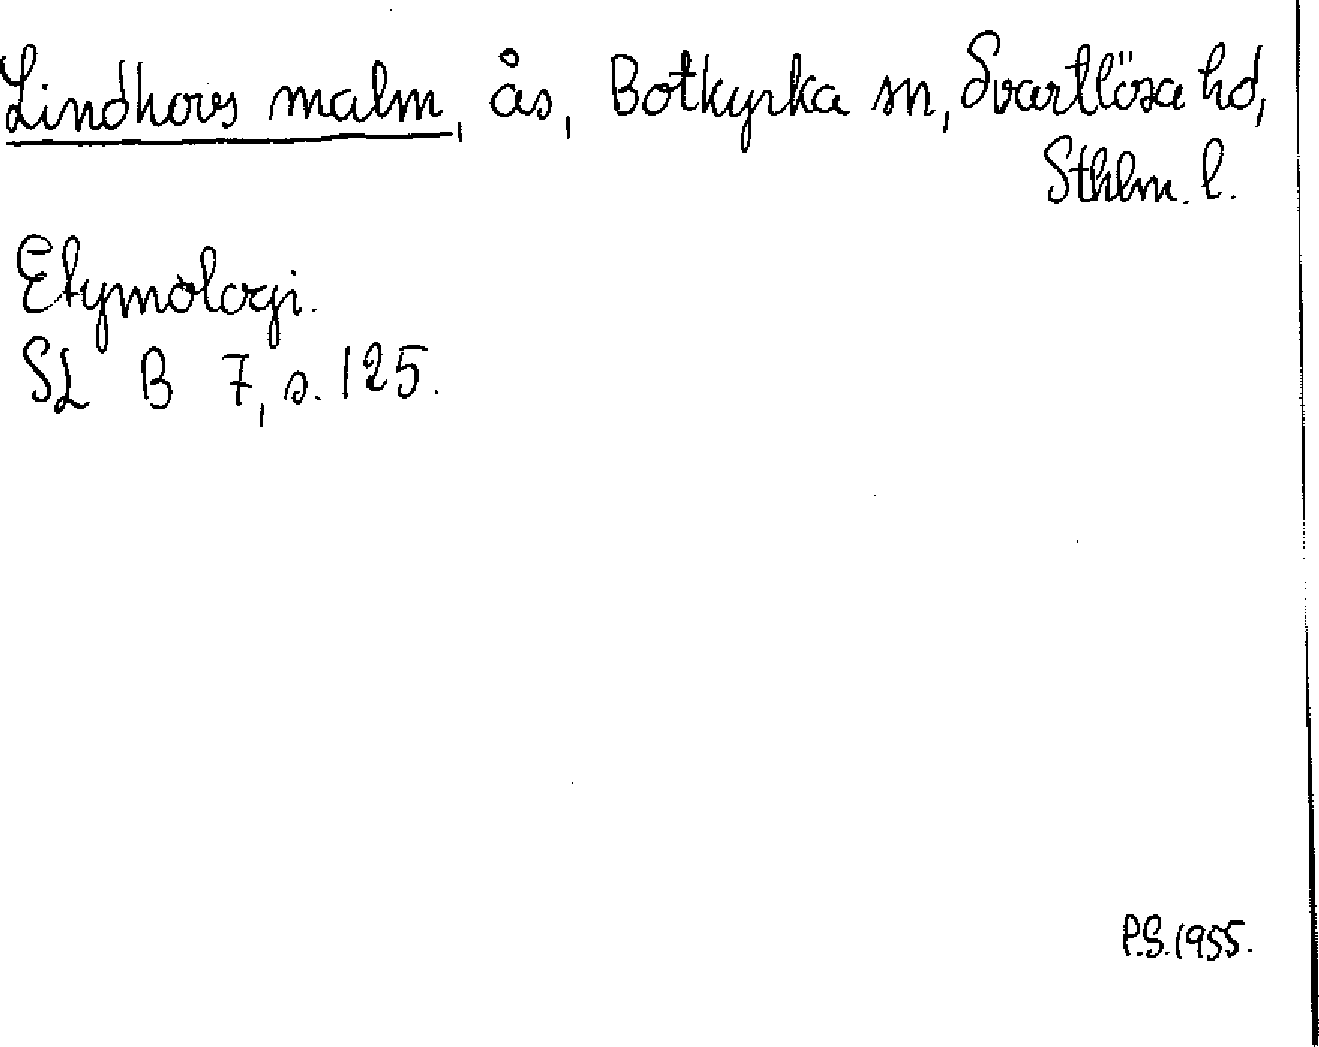 Lindhovs malm, ås, Botkyrka sn, Svartlösa hd,
Sthlm. l.
Etymologi.
SL B 7, s. 125.
P.S. 1955.